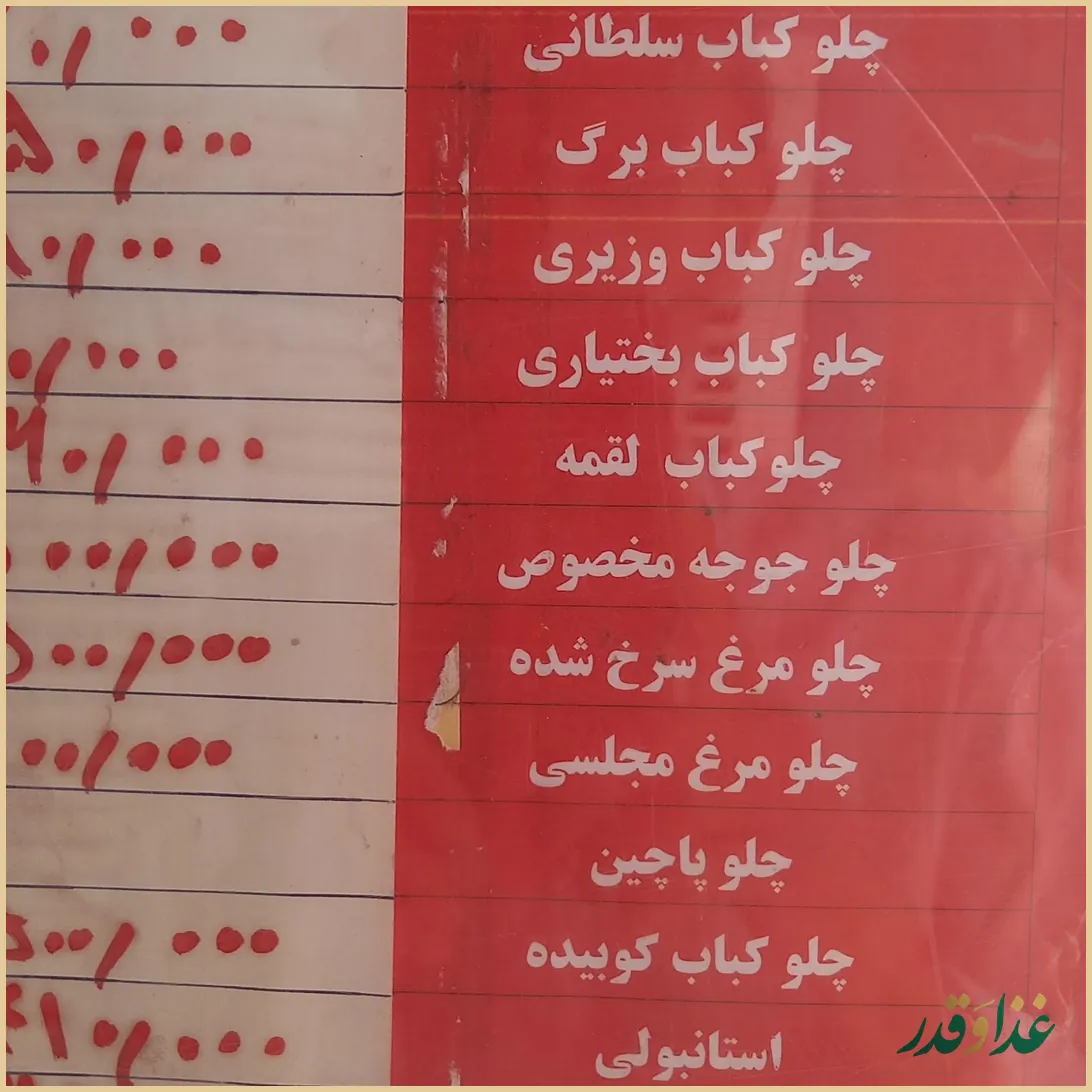 چلو کباب سلطانی ۰/۰۰۰
چلو کباب برگ ۵۰/۰۰۰
چلو کباب وزیری ۸۰/۰۰۰
چلو کباب بختیاری ۰/۰۰۰
چلوکباب لقمه ۰/۰۰۰
چلو جوجه مخصوص ۰۰/۰۰۰
چلو مرغ سرخ شده ۵۰۰/۰۰۰
چلو مرغ مجلسی ۰۰/۰۰۰
چلو پاچین
چلو کباب کوبیده ۵۰۰/۰۰۰
استانبولی ۱۰/۰۰۰
غذا و قدر